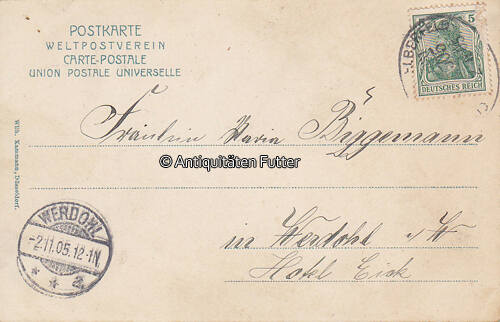 POSTKARTE
WELTPOSTVEREIN
CARTE-POSTALE
UNION POSTALE UNIVERSELLE
ELBERFELD
5
DEUTSCHES REICH
Fräulein Maria Biggemann
© Antiquitäten Futter
in Werdohl a/W
Hotel Eick
Wilh. Kammann, Düsseldorf.
WERDOHL
-2.11.05.12-1N.
* * a.